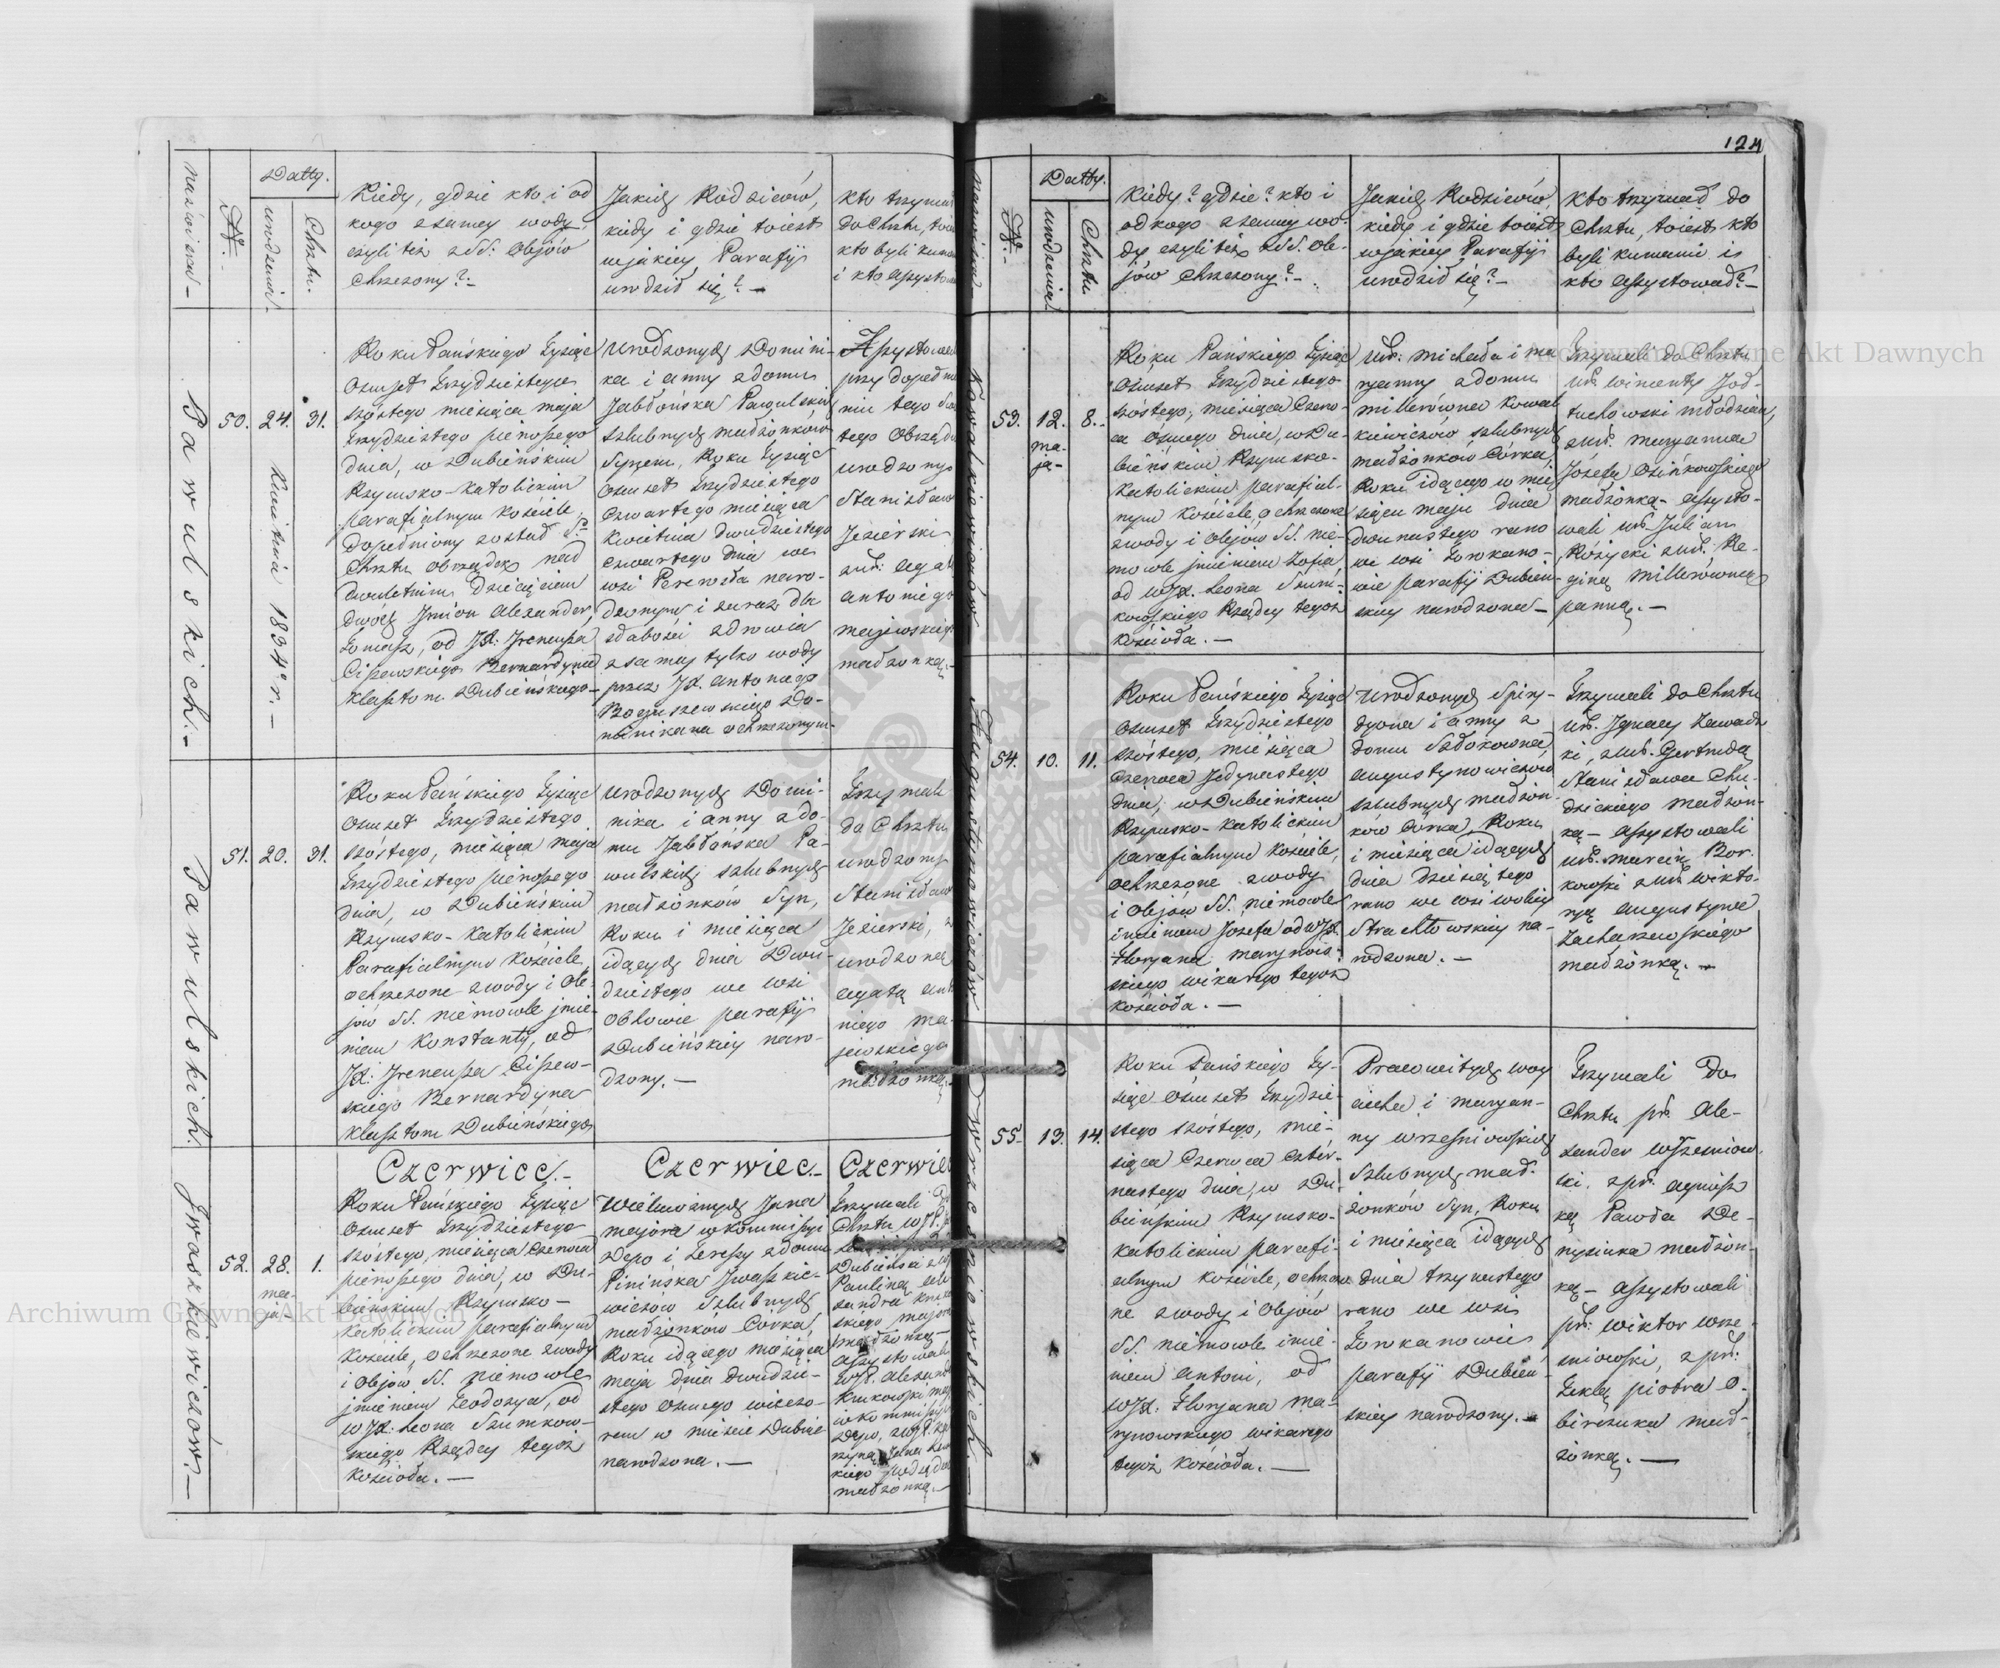 nazwiska –
N°.
Datty.
urodzenia –
Chrztu.
Kiedy, gdzie kto i od
kogo z samey wody
czyli też z SS: Olejów
Chrzczony? –
Jakich Rodziców,
kiedy i gdzie toiest
w jakiey Parafij
urodził się? –
Kto trzymał
do Chrztu,
kto byli
i kto
Pawulskich. –
50.
24.
Kwietnia 1834 r. –
31.
Roku Pańskiego tysiąc
Osmset trzydziestego
szóstego miesiąca maja
trzydziestego pierwszego
dnia, w Dubieńskim
Rzymsko-Katolickim
parafialnym Kościele,
dopełniony został S°
Chrztu Obrządek nad
dwuletnim dziecięciem
dwóch Jmion Alexander,
Tomasz, od JX: Jreneusza
Ciszewskiego Bernardyna
Klasztoru Dubieńskiego –
Urodzonych Domini-
ka i Anny z domu
Jabłońska Pawulskich
szlubnych małżonków
Synem, Roku tysiąc
Osmset trzydziestego
Czwartego miesiąca
Kwietnia dwudziestego
czwartego dnia we
wsi Perewsła naro-
dzonym i zaraz dla
słabości zdrowia
z samej tylko wody
przez JX. Antoniego
Boguszewskiego Do-
minikana ochrzczonym –
przy dopełnie-
niu tego
tego Obrządku
urodzony
Stanisław
Jezierski
z ur:
Antoniego
Majewskiego
małżonką. –
Pawulskich.
51.
20.
31.
Roku Pańskiego tysiąc
Osmset trzydziestego
szóstego, miesiąca maja
trzydziestego pierwszego
dnia, w Dubieńskim
Rzymsko-Katolickim
Parafialnym Kościele
ochrzczone z wody i Ole-
jów SS. niemowle jmie-
niem Konstanty, od
JX: Jreneusza Ciszew-
skiego Bernardyna
Klasztoru Dubieńskiego
Urodzonych Domi-
nika i Anny z do-
mu Jabłońska Pa-
wulskich szlubnych
małżonków Syn,
Roku i miesiąca
idących dnia Dwu-
dziestego we wsi
Obłowie parafij
Dubieńskiey naro-
dzony. –
Trzymali
do Chrztu
urodzony
Stanisław
Jezierski, z
urodzoną
Agatą
niego Ma-
jewskiego
małżonką
Jwaszkiewiczów. –
52.
28.
ma-
ja –
1.
Czerwiec. –
Roku Pańskiego tysiąc
Osmset trzydziestego
szóstego, miesiąca Czerwca
pierwszego dnia, w Du-
bieńskim Rzymsko-
Katolickim parafialnym
Kościele, ochrzczone z wody
i Olejów SS. niemowle
jmieniem Teodozya, od
WJX: Leona Szumkow-
skiego Rządcy tegoż
Kościoła. –
Czerwiec –
Wielmożnych Jana
majora w kommisyi
Depo i Terezy z domu
Pinińska Jwaszkie-
wiczów Szlubnych
małżonków Córka,
Roku idącego miesiąca
maja dnia dwudzie-
stego ósmego wieczo-
rem w mieście Dubnie
narodzona. –
Czerwiec
Trzymali
Chrztu
Dubieński
Pauliną
skiego majora
małżonką –
Assystowali
Krukowski
w kommisyi
Depo,
małżonką. –
124
nazwiska
N°.
Datty.
urodzenia
Chrztu
Kiedy? gdzie? kto i
od kogo z samey wo-
dy czyli też z SS. Ole-
jów Chrzczony? –
Jakich Rodziców,
kiedy i gdzie toiest
w jakiey Parafij
urodził się? –
Kto trzymał do
Chrztu, toiest kto
byli kumami i
kto Assystował? –
Kowalkiewiczów
53.
12.
ma-
ja –
8.
Roku Pańskiego tysiąc
Osmset trzydziestego
szóstego, miesiąca Czerw-
ca ósmego dnia, w Du-
bieńskim Rzymsko-
Katolickim parafial-
nym Kościele, ochrzczone
z wody i Olejów SS. nie-
mowle jmieniem Zofia,
od WJX. Leona Szum-
kowskiego Rządcy tegoż
Kościoła. –
Ur: Michała i Ma-
ryanny z domu
Millerówna Kowal-
kiewiczów szlubnych
małżonków Córka,
Roku idącego w mie-
siącu maju dnia
dwunastego rano
we wsi
wie parafij Dubień-
skiey narodzona –
Trzymali do Chrztu
Ur. Wincenty Jod-
tuchowski młodzian,
z Ur. Maryanna
Józefa Osińkowskiego
małżonką – Assysto-
wali Ur. Julian
Różycki z Ur. Re-
giną Millerówną
panną. –
Augustynowiczów
54.
10.
11.
Roku Pańskiego tysiąc
Osmset trzydziestego
szóstego, miesiąca
Czerwca Jedynastego
dnia, w Dubieńskim
Rzymsko-Katolickim
parafialnym Kościele,
ochrzczone z wody
i Olejów SS. niemowle
imieniem Jozefa od WJX.
Floryana Marynow-
skiego wikarego tegoż
Kościoła. –
Urodzonych Spiry-
dyona i Anny z
domu Sidokowna,
Augustynowiczów
szlubnych małżon-
ków Córka, Roku
i miesiąca idących
dnia dziesiątego
rano we wsi Woliey
Strachłowskiey na-
rodzona. –
Trzymali do Chrztu
Ur. Jgnacy Zawadz-
ki, z Ur. Gertrudą
Stanisława Chu-
dzickiego małżon-
ką – Assystowali
Ur. Marcin Bor-
kowski z Ur. Wikto-
ryą Augustyna
Zacharzewskiego
małżonką. –
Wrześniowskich –
55.
13.
14.
Roku Pańskiego ty-
siąc Osmset trzydzie-
stego szóstego, mie-
siąca Czerwca czter-
nastego dnia, w Du-
bieńskim Rzymsko-
Katolickim parafi-
alnym Kościele, ochrzczo-
ne z wody i Olejów
SS. niemowle imie-
niem Antoni, od
WJX. Floryana Ma-
rynowskiego wikarego
tegoż Kościoła. –
Pracowitych Woy-
ciecha i Maryan-
ny Wrzesniowskich
Szlubnych mał-
żonków Syn, Roku
i miesiąca idących
dnia trzynastego
rano we wsi
parafij Dubień-
skiey narodzony. –
Trzymali do
Chrztu pr. Ale-
xander Wrzesniow-
ski, z pr. Agniesz-
ką Pawła De-
nysiuka małżon-
ką – Assystowali
pr: Wiktor Wrze-
sniowski, z pr:
Teklą Piotra O-
birczuka mał-
żonką. –
Archiwum Główne Akt Dawnych
Archiwum Główne Akt Dawnych